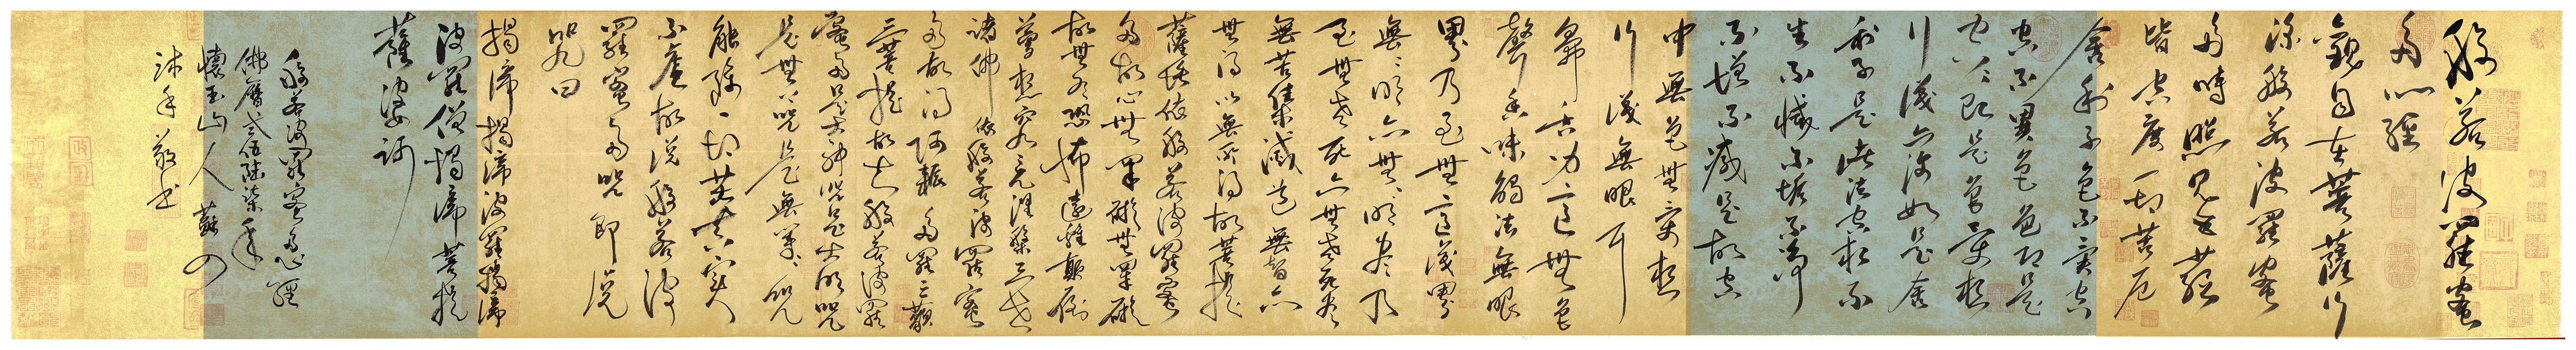 般若波羅蜜
多心經
觀自在菩薩行
深般若波羅蜜
多時照見五蘊
皆空度一切苦厄
舍利子色不異空
空不異色色即是
空空即是色受想
行識亦復如是舍
利子是諸法空相不
生不滅不垢不淨
不增不減是故空
中無色無受想
行識無眼耳
鼻舌身意無色
聲香味觸法無眼
界乃至無意識界
無無明亦無無明盡乃
至無老死亦無老死盡
無苦集滅道無智亦
無得以無所得故菩提
薩埵依般若波羅蜜
多故心無罣礙無罣礙
故無有恐怖遠離顛倒
夢想究竟涅槃三世
諸佛依般若波羅蜜
多故得阿耨多羅三藐
三菩提故知般若波羅
蜜多是大神咒是大明咒
是無上咒是無等等咒
能除一切苦真實
不虛故說般若波
羅蜜多咒即說
咒曰
揭諦揭諦波羅揭諦
波羅僧揭諦菩提
薩婆訶
般若波羅蜜多心經
佛曆貳伍陸柒年
懷玉山人
沐手敬書